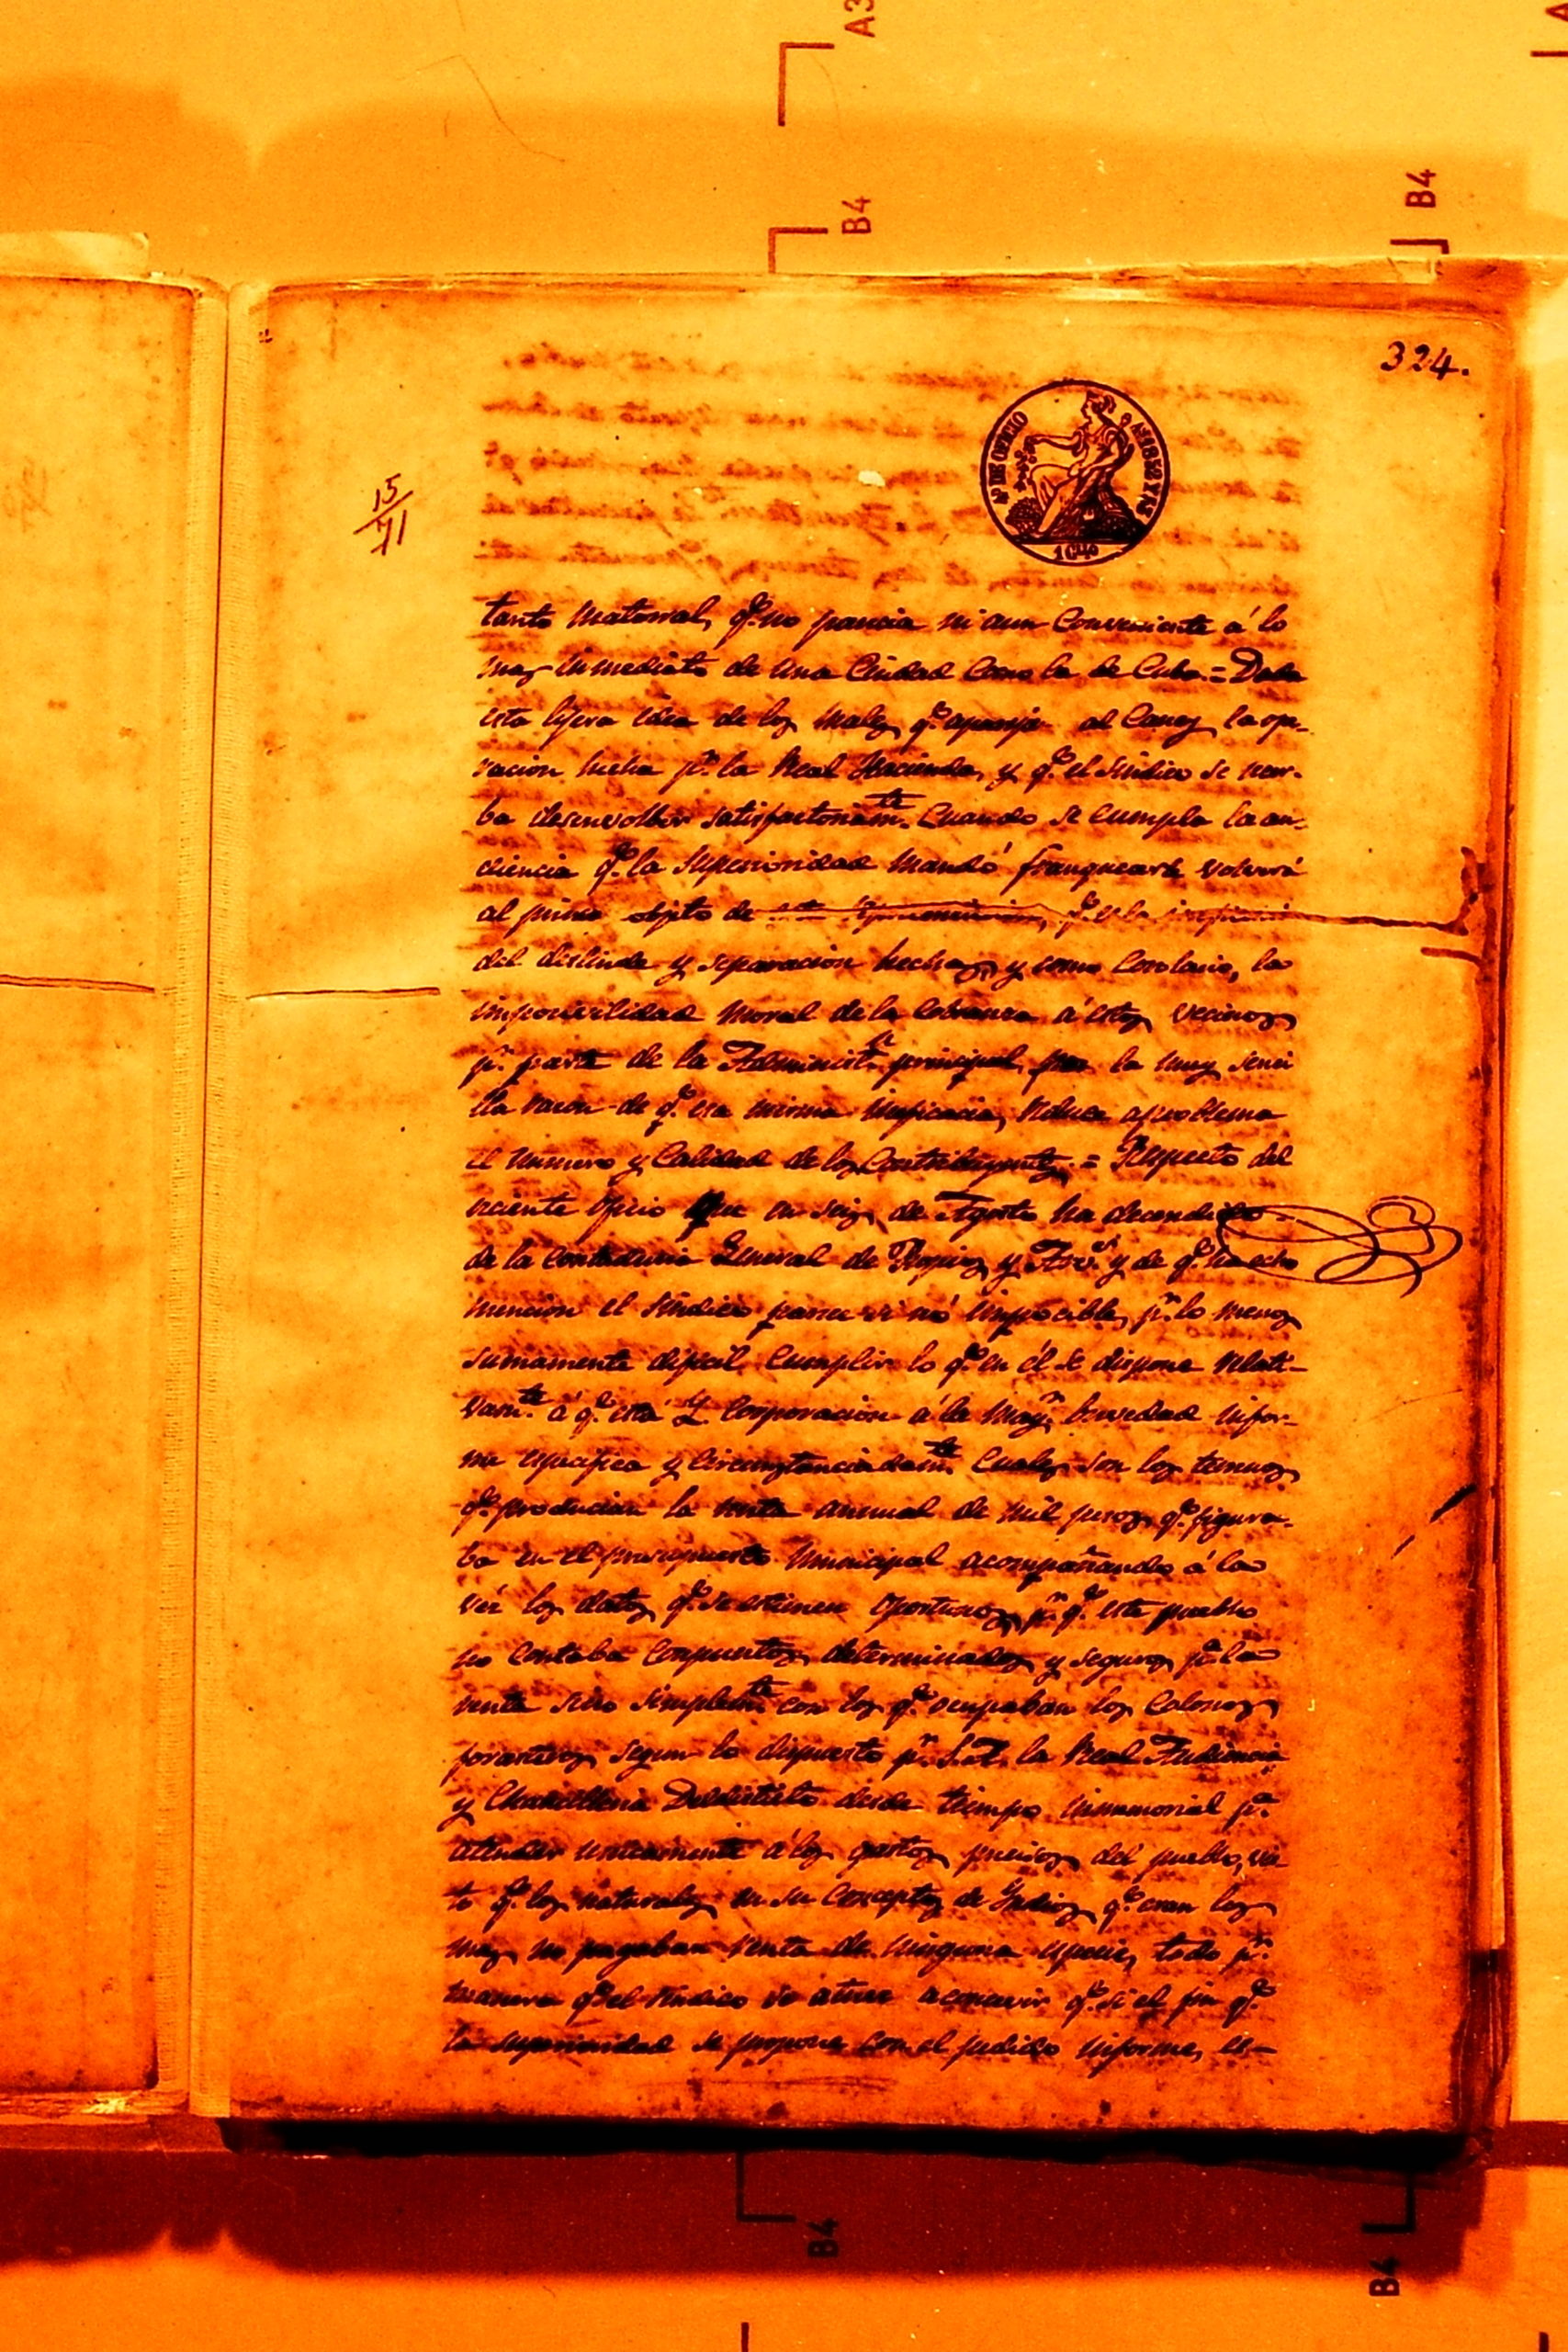 A3
B4
B4
324.
15
71
4º DE OFICIO AÑS 1852 Y 53
tanto matorral, qe. no parecia ni aun conveniente á lo
mas inmediato de una Ciudad como la de Cuba.= Dada
esta lijera idea de los males qe. aparejó al Caney la ope-
racion hecha pr. la Real Hacienda, y qe. el Sindico se reser-
ba desenvolber satisfactoriamte. cuando se cumpla la au-
diencia qe. la Superioridad mandó franquearle volverá
al primer objeto de esta qe. es la
del deslinde y separacion hechas, y como corolario, la
imposivilidad moral de la cobranza á estos vecinos
pr. parte de la Administn. principal, por la muy senci
lla razon de qe. esa misma ineficacia, reduce a problema
el numero y calidad de los Contribuyentes.= Respecto del
reciente oficio que en seis de Agosto ha decendido
de la contaduria General de Propios y Arvs. y de qe. ha echo
mencion el Sindico parece si nó imposible, pr. lo menos
sumamente dificil cumplir lo qe. en él se dispone relati-
vamte. á qe. esta Y. Corporacion á la mayr. brevedad infor-
me especifica y circunstanciadamte. cuales son los terrenos
qe. producian la renta annual de mil pesos qe. figura-
ba en el presupuesto Municipal acompañando á la
véz los datos qe. se estimen oportunos, pr. qe. este pueblo
no contaba con puntos determinados y seguros pa. la
renta sino simplemte. con los qe. ocupaban los Colonos
forasteros segun lo dispuesto pr. S.A. la Real Audiencia
y Chancilleria Deldistrito desde tiempo inmemorial pa.
atender unicamente á los gastos precisos del pueblo, 
to qe. los naturales en su concepto de Yndios qe. eran los
mas no pagaban renta de ninguna especie, todo pr.
manera qe. el Sindico se atreve a concevir qe. si el fin qe.
la superioridad se propone con el pedido informe, es-
B4
B4